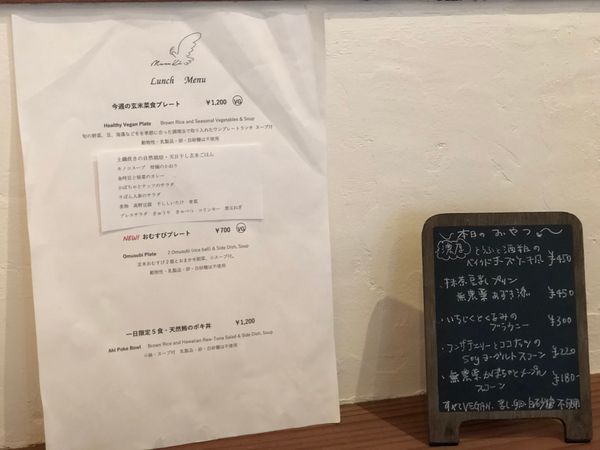 Lunch Menu
今週の玄米菜食プレート ¥1,200 VG
Healthy Vegan Plate Brown Rice and Seasonal Vegetables & Soup
動物性・乳製品・卵・白砂糖は不使用
土鍋炊きの自然栽培・天日干し玄米ごはん
キノコスープ 柑橘のかおり
金時豆と根菜のカレー
かぼちゃとナッツのサラダ
NEW!! おむすびプレート ¥700 VG
Omusubi Plate 2 Omusubi (rice ball) & Side Dish, Soup
玄米おむすび2個とおまかせ総菜、小スープ付。
動物性・乳製品・卵・白砂糖は不使用
一日限定5食・天然鮪のポキ丼 ¥1,200
Ahi Poke Bowl Brown Rice and Hawaiian Raw-Tuna Salad & Side Dish, Soup
小鉢・スープ付 乳製品・卵・白砂糖は不使用
本日のおやつ
とうふと酒粕の
ベイクドチーズケーキ風 ¥450
・抹茶豆乳プリン
無農薬あずき添 ¥450
・いちじくとくるみの
ブラウニー ¥300
ココナッツの
Soyヨーグルトスコーン ¥220
・無農薬かぼちゃとメープル
スコーン ¥180-
すべてVEGAN、白砂糖不使用